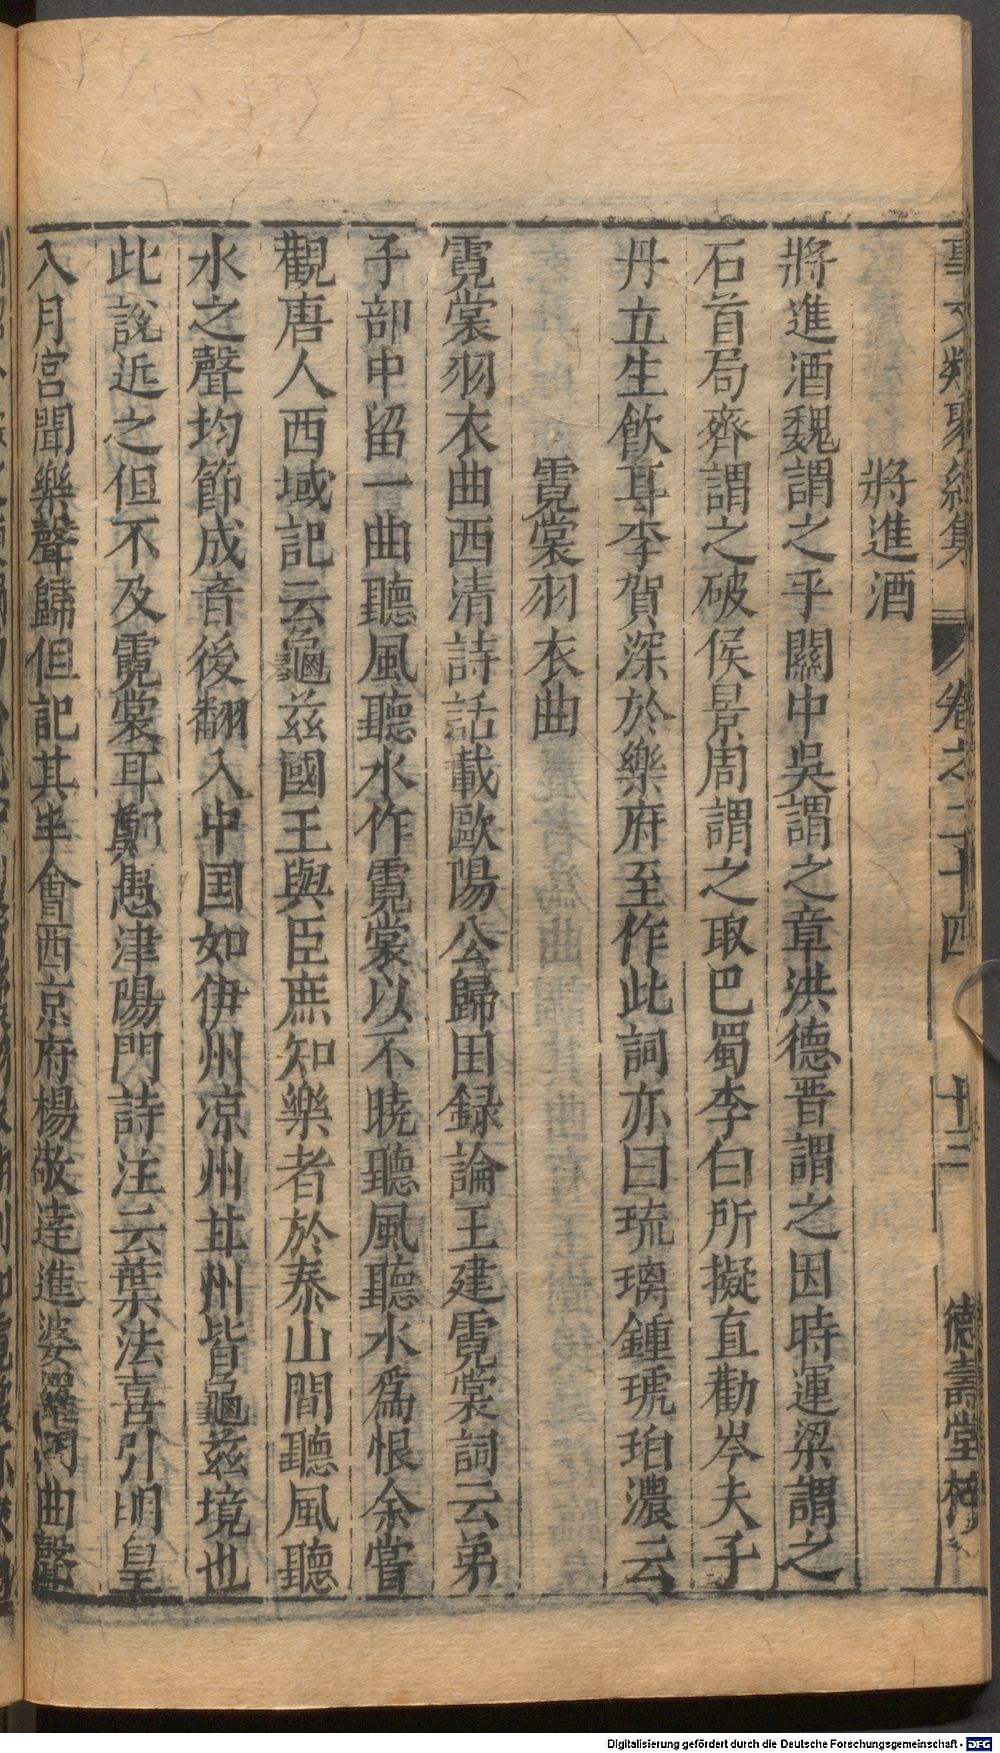 事文類聚續集 卷之二十四 十二 德壽堂梓
將進酒
將進酒魏謂之平關中吳謂之章洪德晋謂之因時運梁謂之
石首局齊謂之破侯景周謂之取巴蜀李白所擬直勸岑夫子
丹丘生飲耳李賀深於樂府至作此詞亦曰琉璃鍾琥珀濃云
霓裳羽衣曲
霓裳羽衣曲西清詩話載歐陽公歸田録論王建霓裳詞云弟
子部中留一曲聽風聽水作霓裳以不曉聽風聽水爲恨余嘗
觀唐人西域記云龜兹國王與臣庶知樂者於泰山間聽風聽
水之聲均節成音後翻入中国如伊州凉州甘州皆龜兹境也
此説近之但不及霓裳耳鄭愚津陽門詩注云葉法喜引明皇
入月宫聞樂聲歸但記其半會西京府楊敬逹進婆羅門曲聲
Digitalisierung gefördert durch die Deutsche Forschungsgemeinschaft - DFG